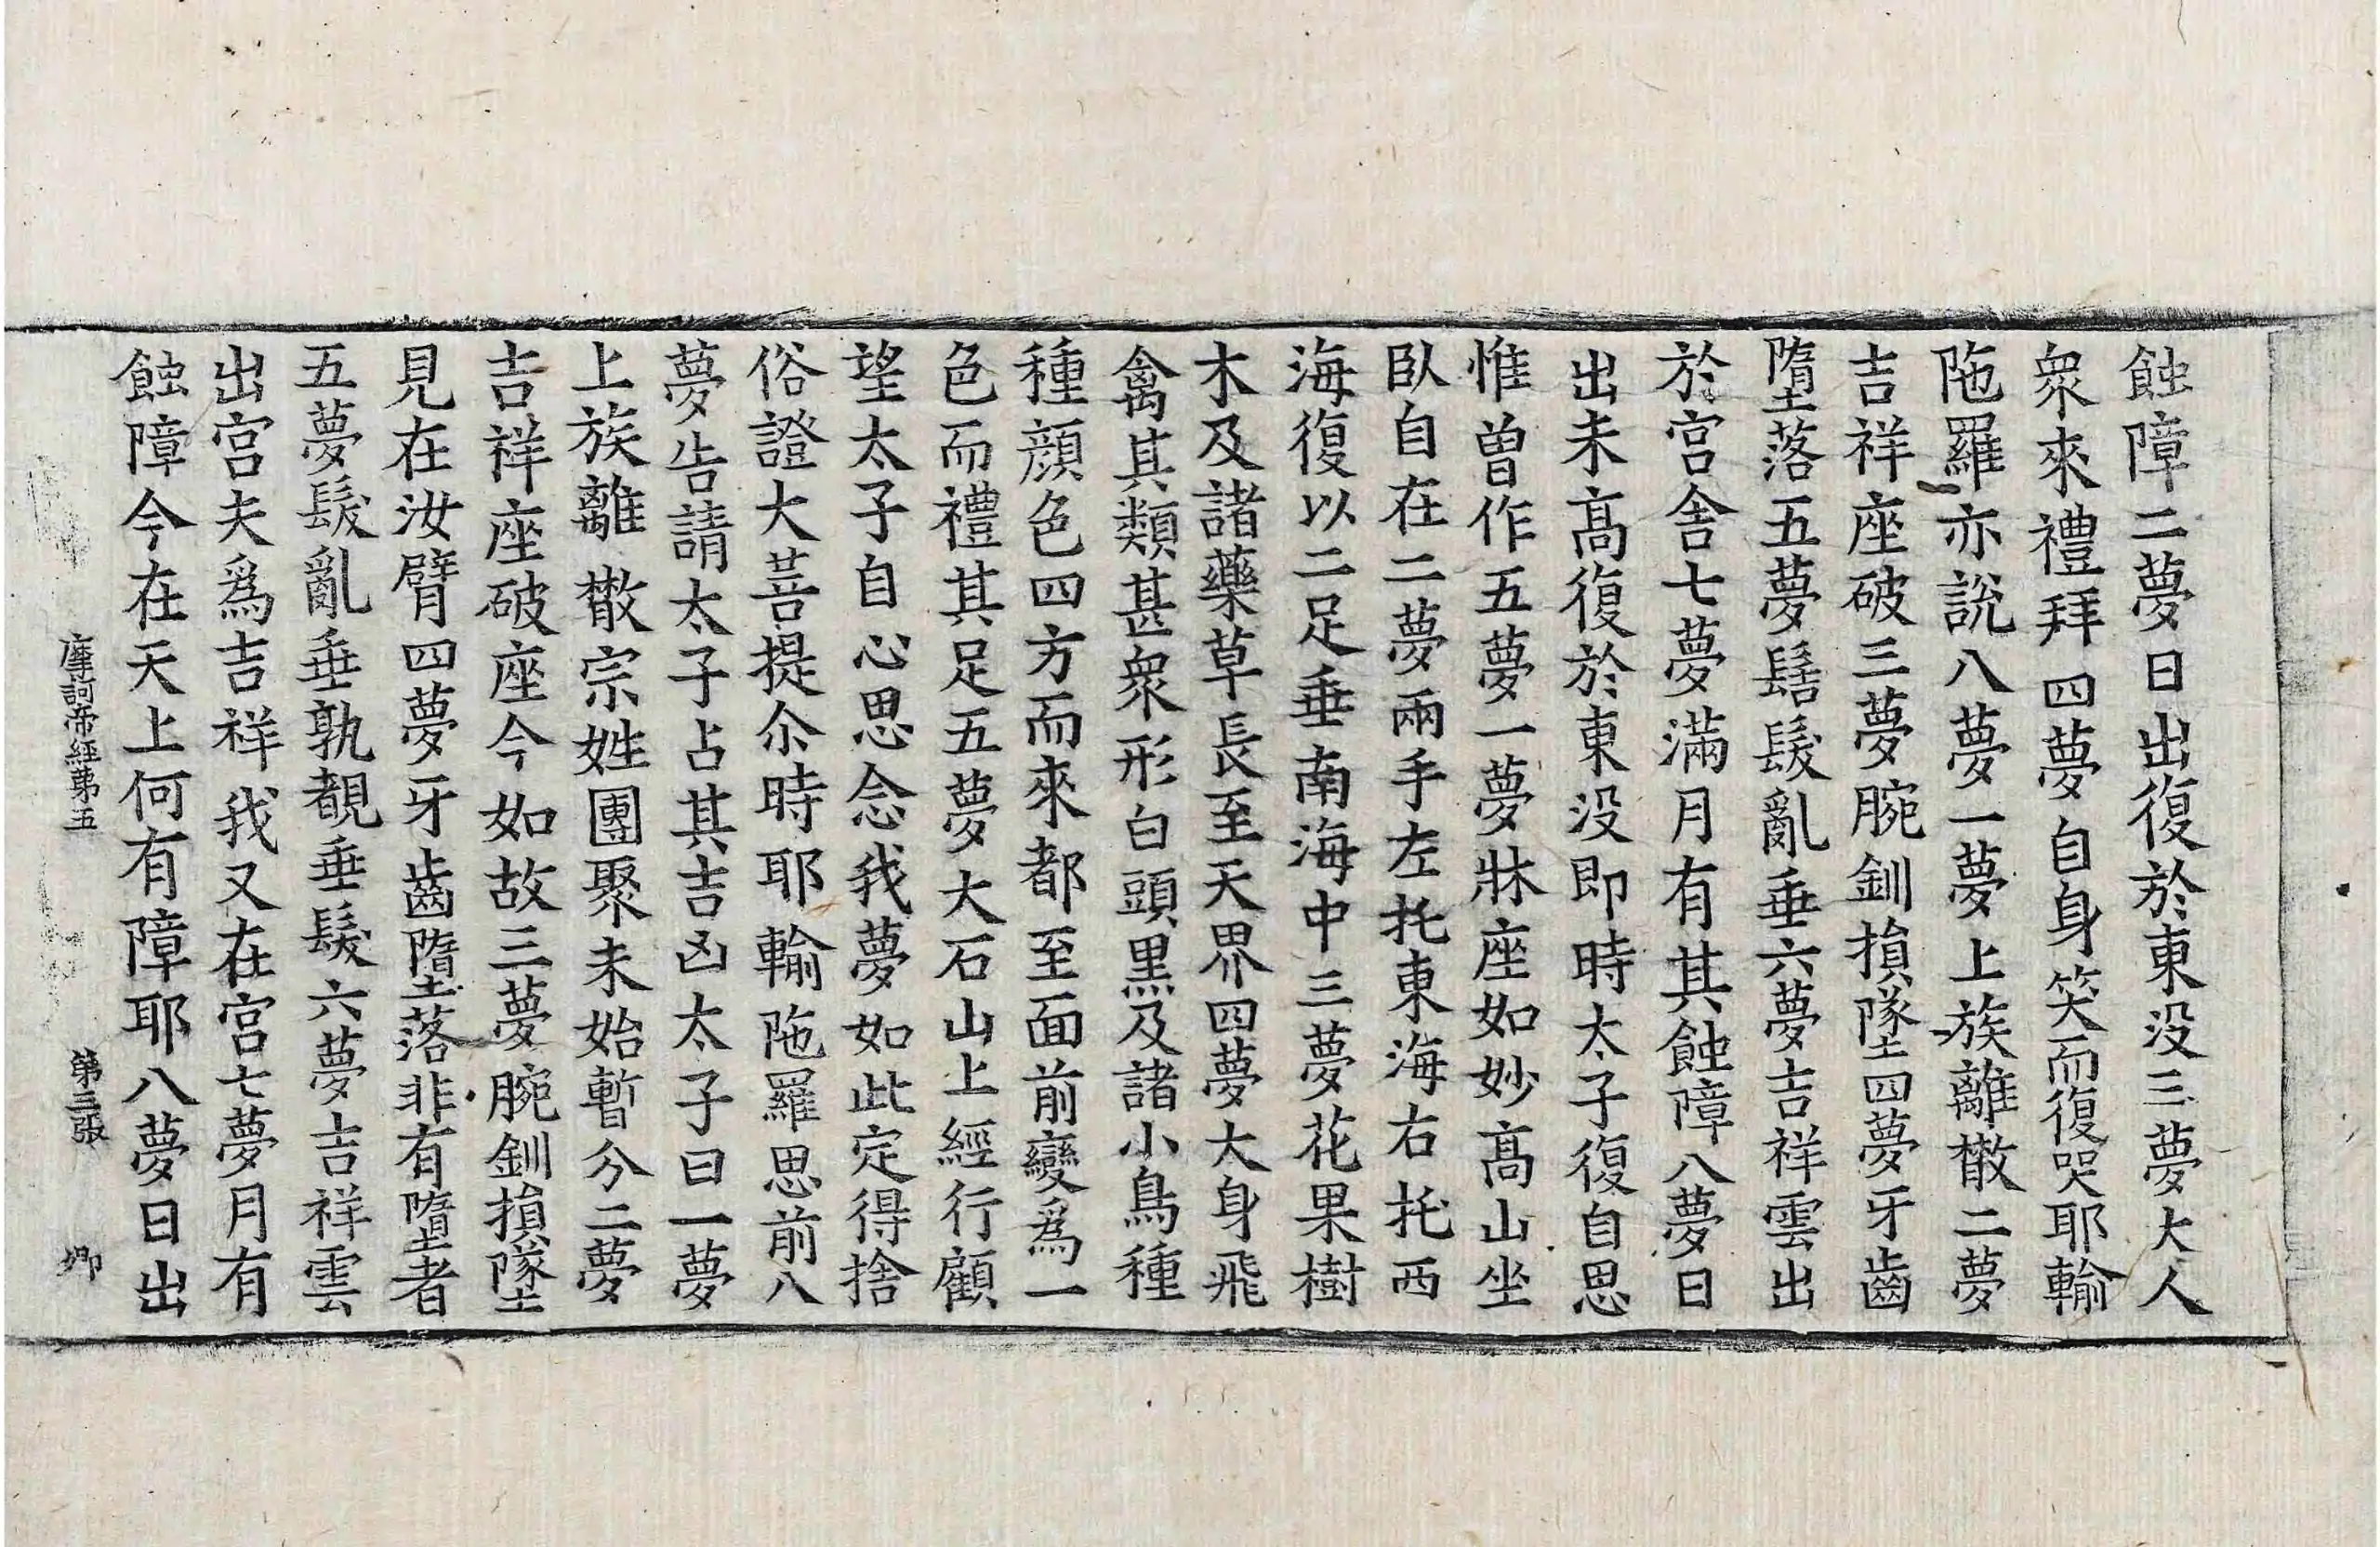 蝕障二夢日出復於東没三夢大人
衆來禮拜四夢自身笑而復哭耶輸
陁羅亦說八夢一夢上族離散二夢
吉祥座破三夢腕釧損墜四夢牙齒
墮落五夢鬐髮亂垂六夢吉祥雲出
於宮舍七夢滿月有其蝕障八夢日
出未高復於東没即時太子復自思
惟曾作五夢一夢牀座如妙高山坐
臥自在二夢兩手左托東海右托西
海復以二足垂南海中三夢花果樹
木及諸藥草長至天界四夢大身飛
禽其類甚衆形白頭黑及諸小鳥種
種顔色四方而來都至面前變爲一
色而禮其足五夢大石山上經行顧
望太子自心思念我夢如此定得捨
俗證大菩提尒時耶輸陁羅思前八
夢告請太子占其吉凶太子曰一夢
上族離散宗姓團聚未始暫分二夢
吉祥座破座今如故三夢腕釧損墜
見在汝臂四夢牙齒墮落非有墮者
五夢髮亂垂孰覩垂髮六夢吉祥雲
出宮夫爲吉祥我又在宮七夢月有
蝕障今在天上何有障耶八夢日出
摩訶帝經第五 第三張 卿